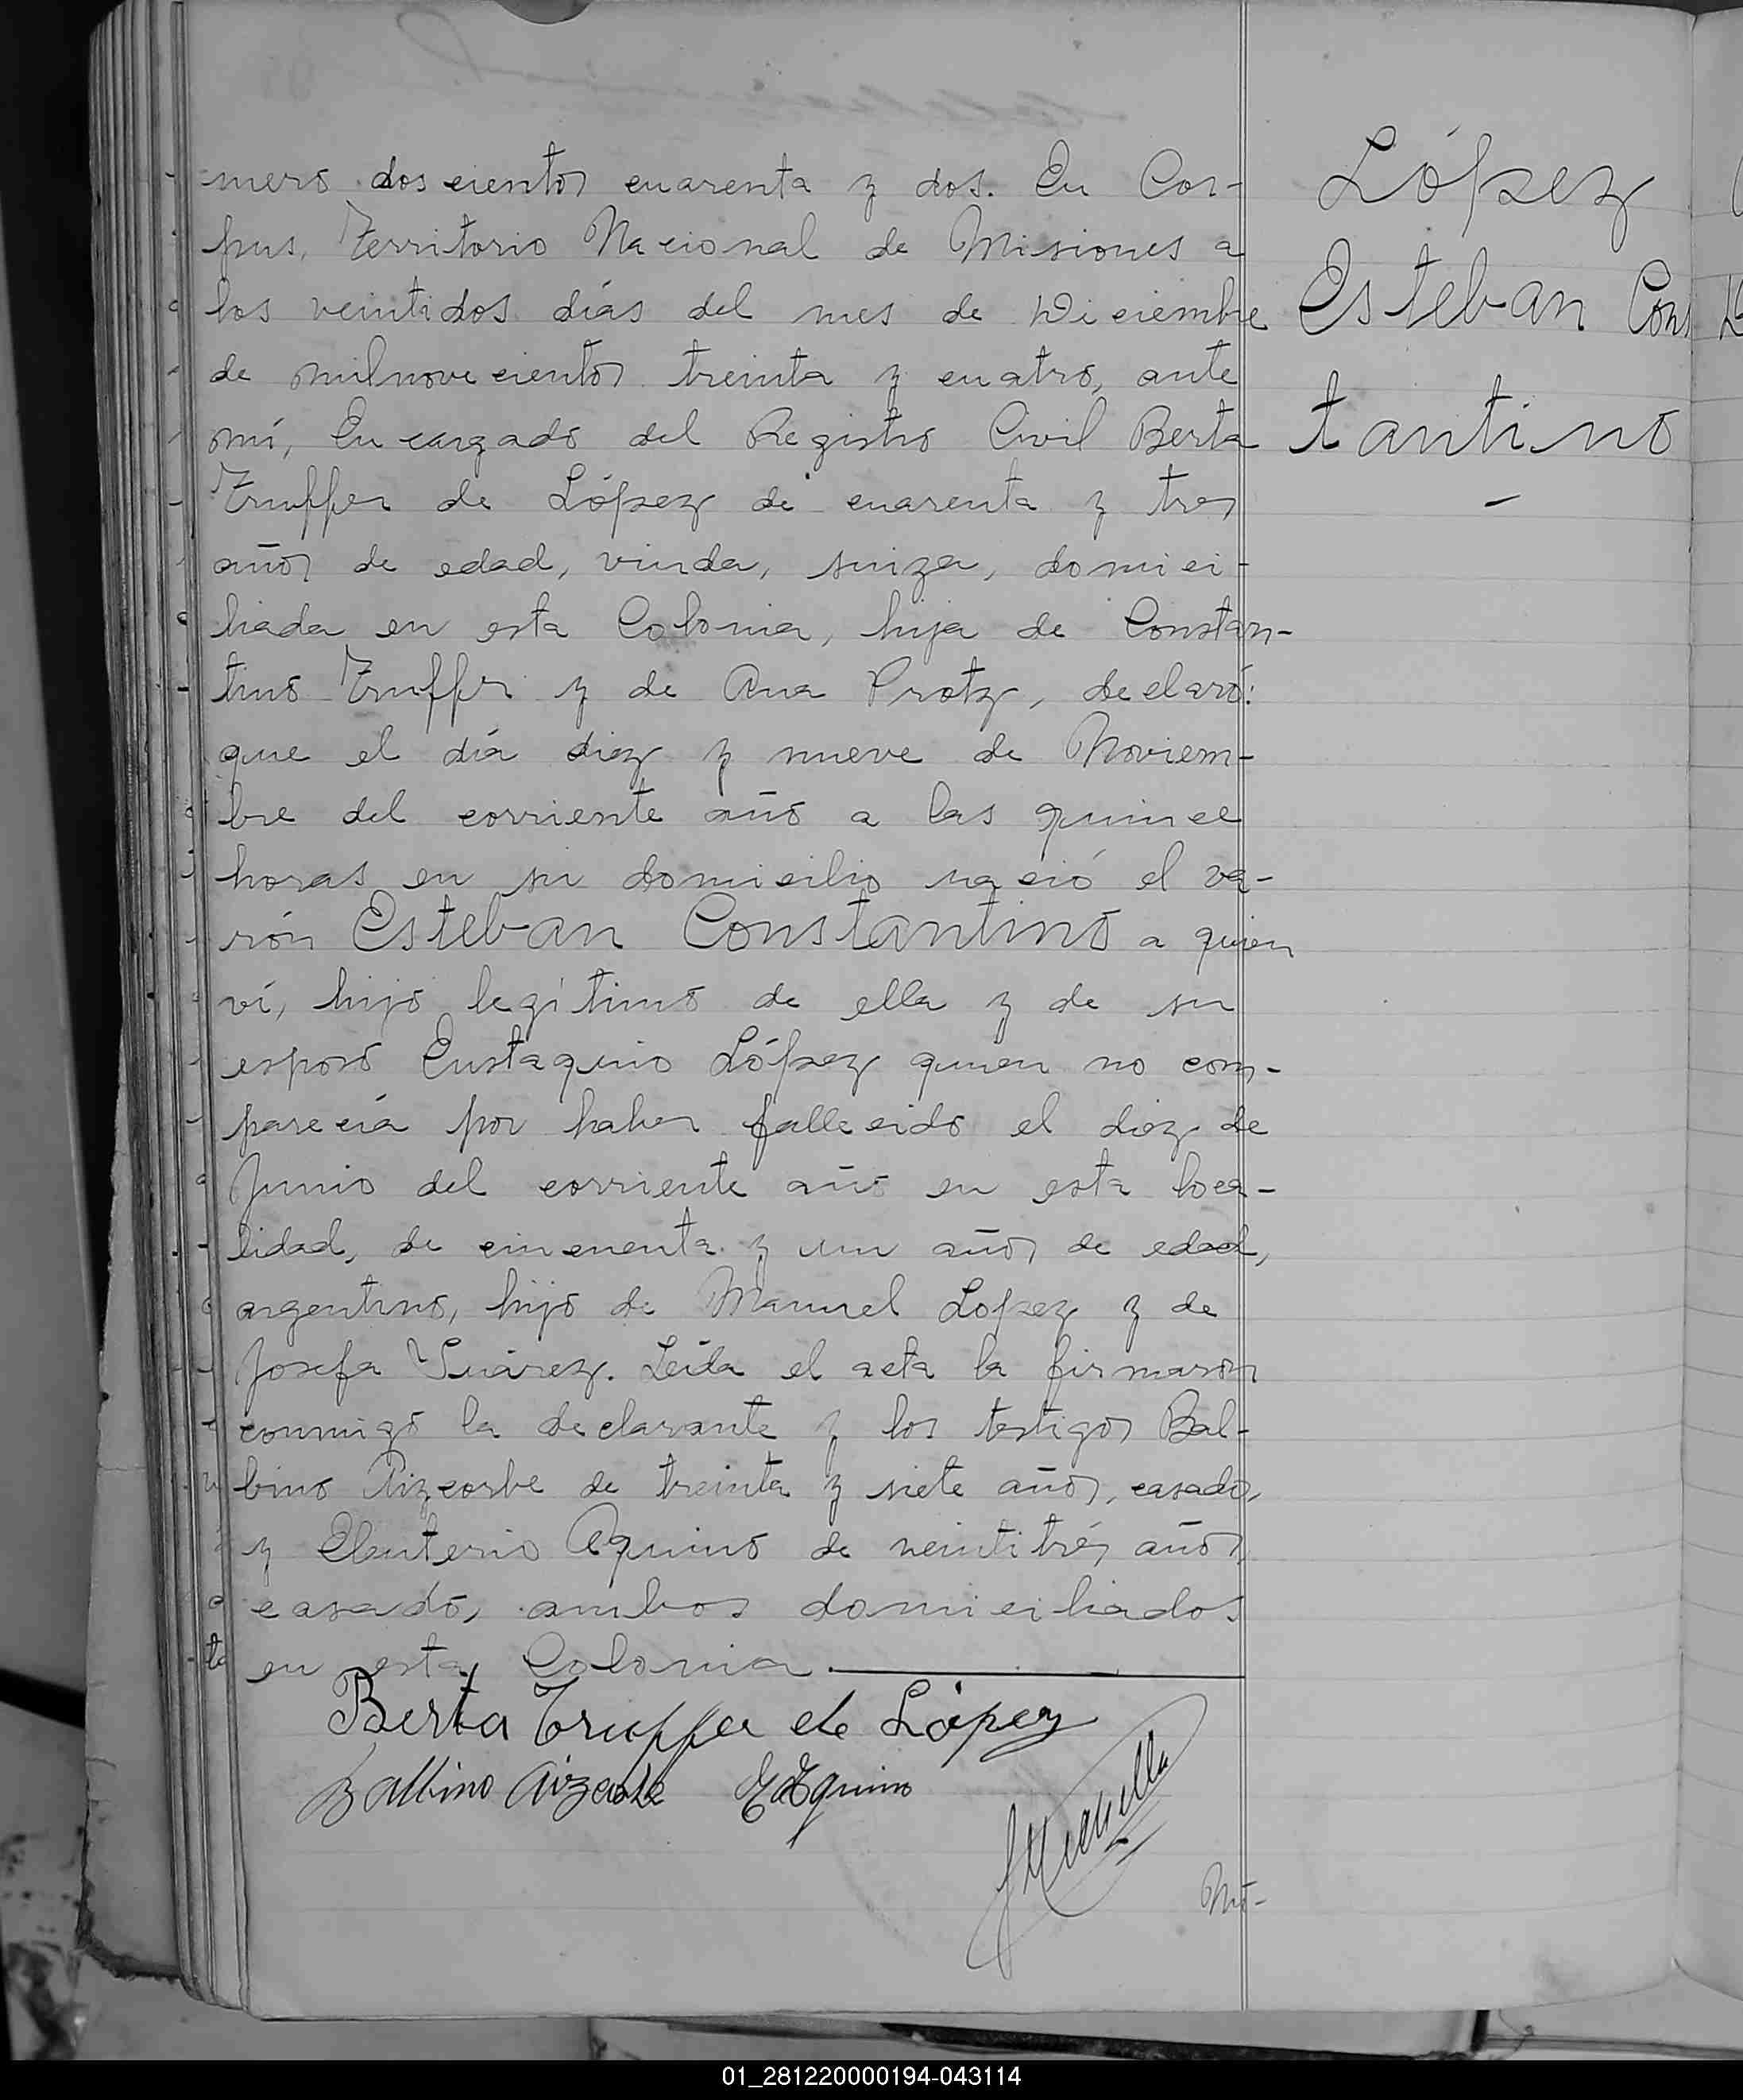 mero doscientos cuarenta y dos. En Cor-
pus, Territorio Nacional de Misiones a
los veintidos días del mes de Diciembre
de milnovecientos treinta y cuatro, ante
mí, Encargado del Registro Civil Berta
Truffer de López de cuarenta y tres
años de edad, viuda, suiza, domici-
liada en esta Colonia, hija de Constan-
tino Truffer y de Ana Protz, declaró:
que el día diez y nueve de Noviem-
bre del corriente año a las quince
horas en su domicilio nació el va-
rón Esteban Constantino a quien
ví, hijo legítimo de ella y de su
esposo Eustaquio López quien no com-
parecía por haber fallecido el diez de
Junio del corriente año en esta loca-
lidad, de cincuenta y un años de edad,
argentino, hijo de Manuel Lopez y de
Josefa Suárez. Leída el acta la firmaron
conmigo la declarante y los testigos Bal-
bino Aizcorbe de treinta y siete años, casado,
y Eleuterio Aquino de veintitrés años
casado, ambos domiciliados
en esta Colonia.
Berta Truffer de López
Balbino Aizcorbe E Aquino
Nú-
López
Esteban Cons
tantino
01_281220000194-043114